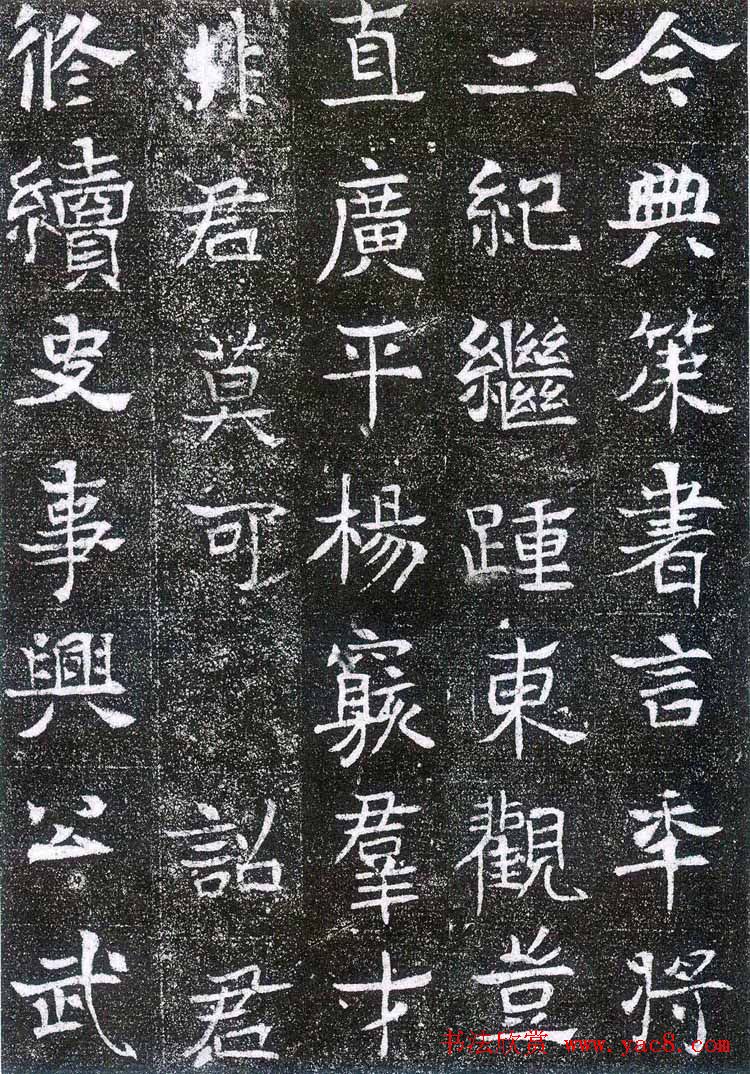 今典策書言年將
二紀繼踵東觀豈
直廣平楊羣才
君莫可詔君
脩續史事興公武
书法欣赏 www.yac8.com